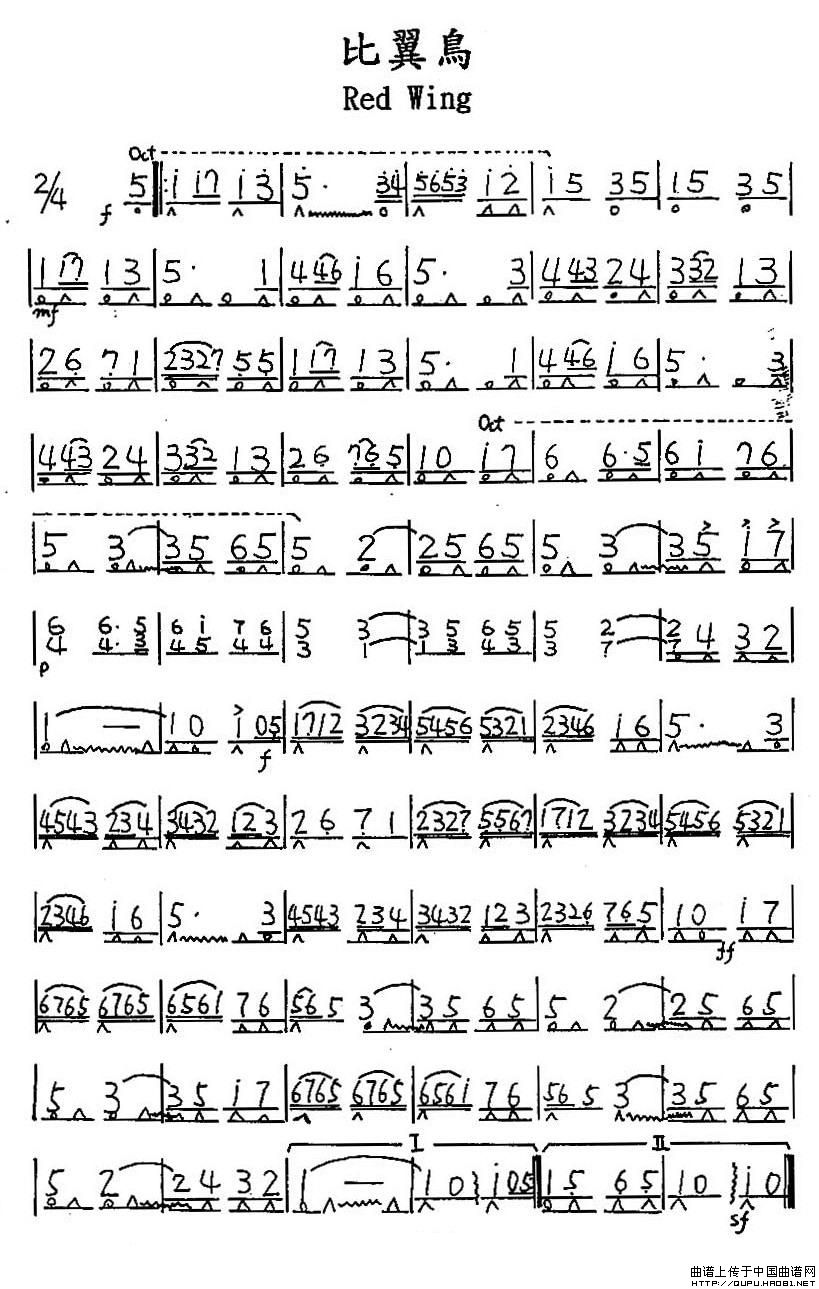 比翼鳥
Red Wing
Oct
2/4 f 5 ‖: 1 17 13 | 5· 34 | 5653 12 | 15 35 | 15 35 |
| 117 13 | 5· 1 | 446 16 | 5· 3 | 443 24 | 332 13 |
mf
| 26 71 | 2327 55 | 117 13 | 5· 1 | 446 16 | 5· 3 |
Oct
| 443 24 | 332 13 | 26 765 | 10 17 | 6 6·5 | 61 76 |
| 5 3 | 35 65 | 5 2 | 25 65 | 5 3 | 35 17 |
| 6 6·5 | 61 76 | 5 3 | 35 65 | 5 2 | 24 32 |
4 4·3 45 44 3 1 1 3 43 3 7 7
p
| 1 — | 10 105 | 1712 3234 | 5456 5321 | 2346 16 | 5· 3 |
f
| 4543 234 | 3432 123 | 26 71 | 2327 5567 | 1712 3234 | 5456 5321 |
| 2346 16 | 5· 3 | 4543 234 | 3432 123 | 2326 765 | 10 17 |
ff
| 6765 6765 | 6561 76 | 565 3 | 35 65 | 5 2 | 25 65 |
| 5 3 | 35 17 | 6765 6765 | 6561 76 | 565 3 | 35 65 |
I II
| 5 2 | 24 32 | 1 — | 10 105 ‖ 15 65 | 10 10 ‖
sf
曲谱上传于中国曲谱网
http://QUPU.HAO81.NET